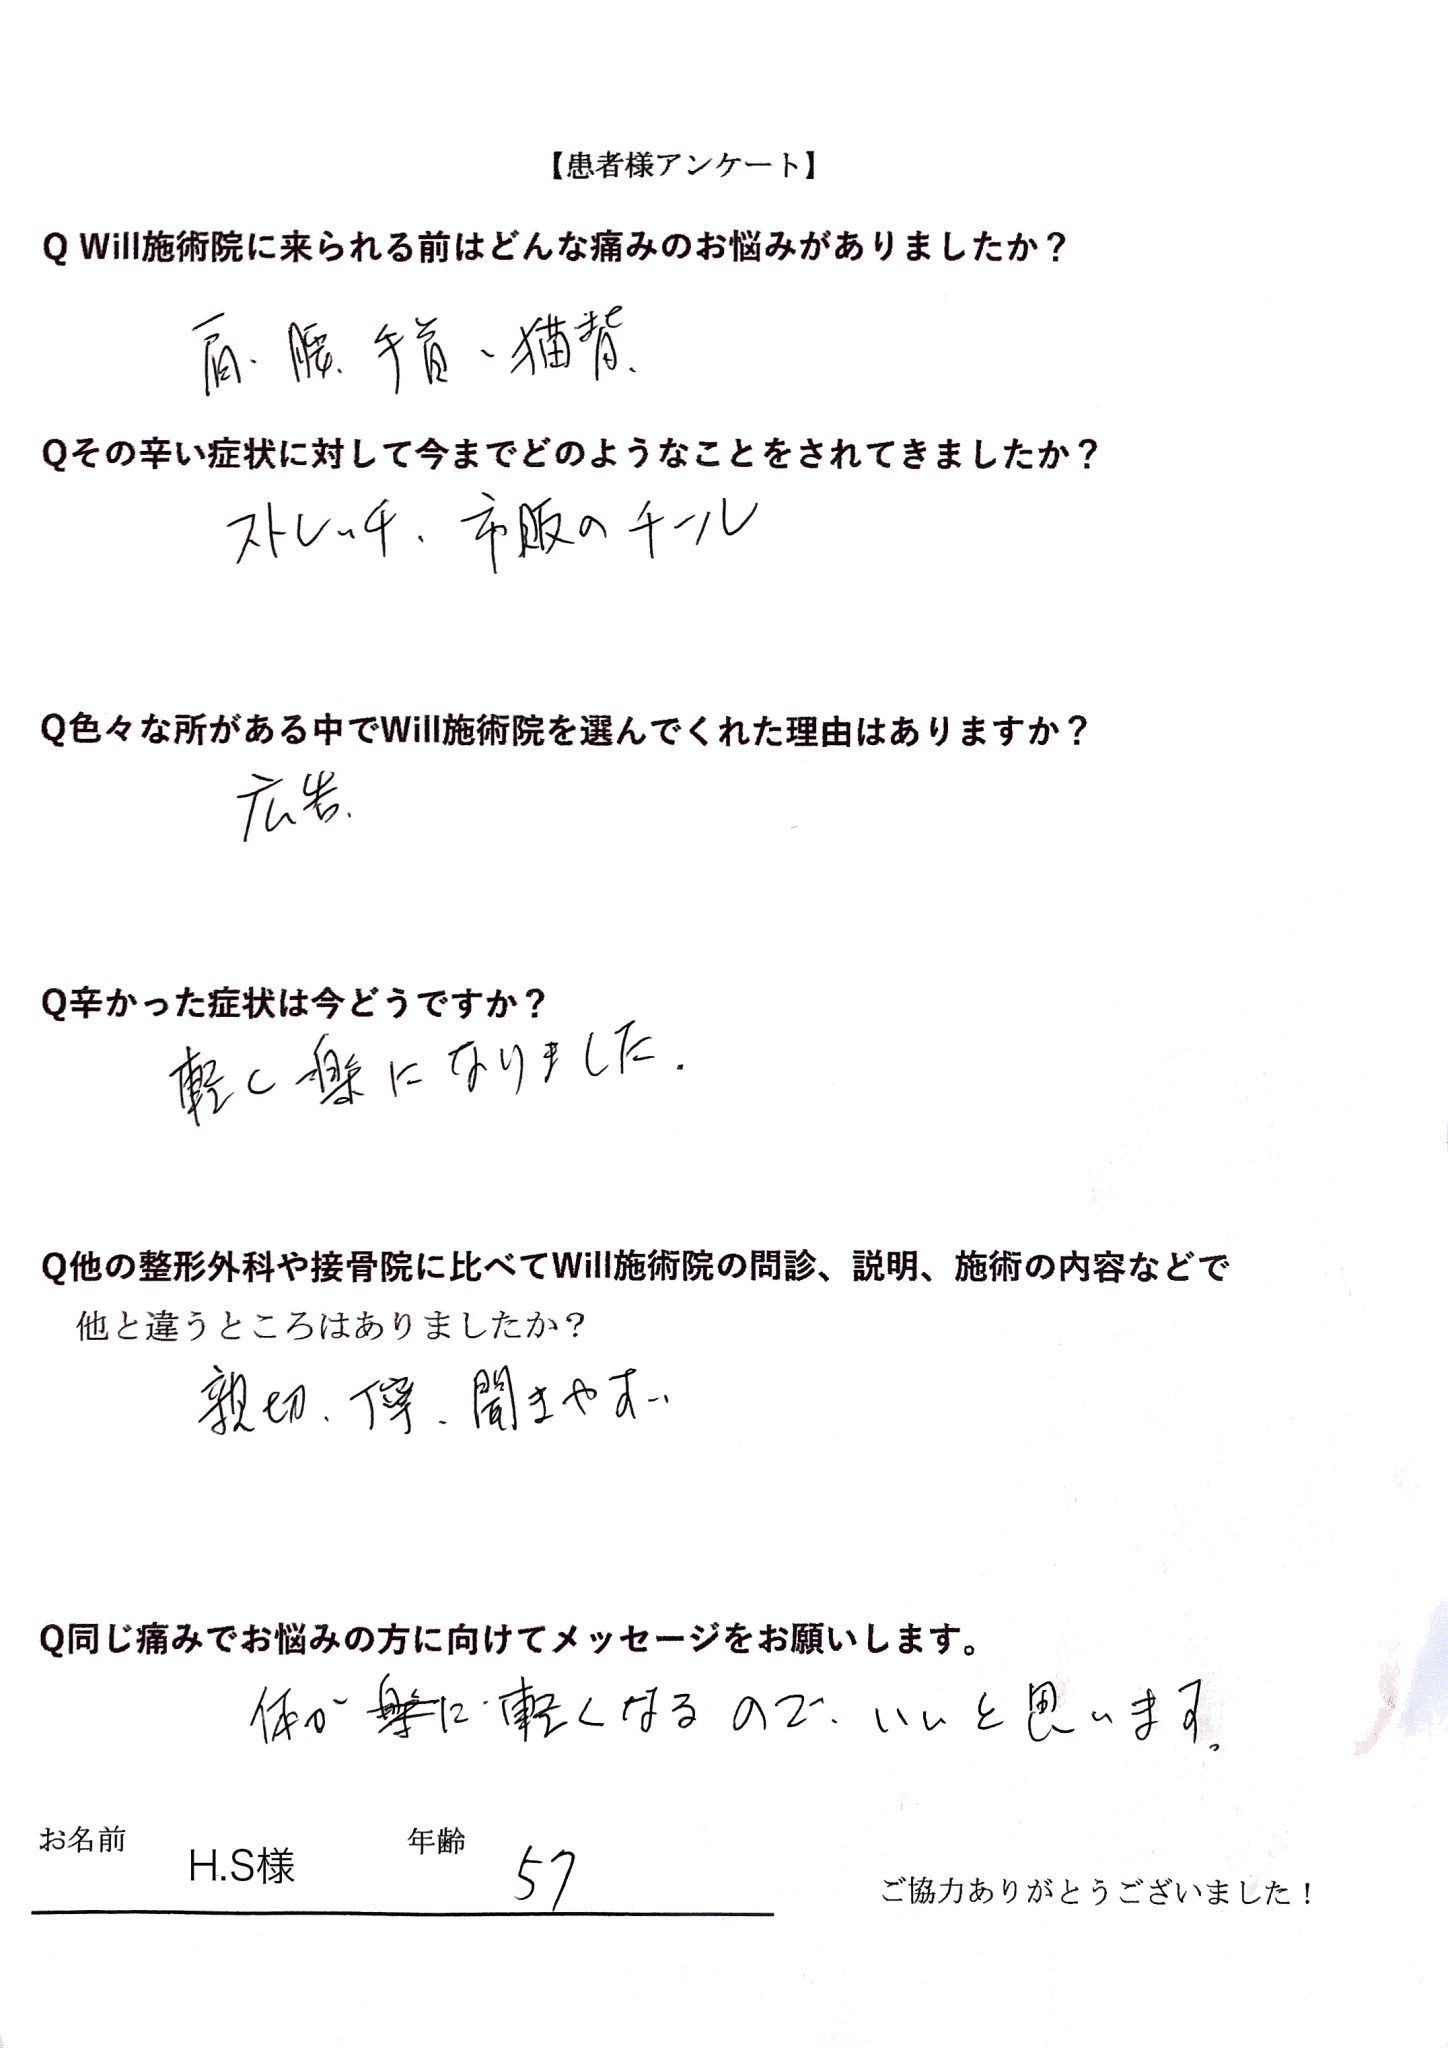 【患者様アンケート】
Q Will施術院に来られる前はどんな痛みのお悩みがありましたか？
肩、腰、手首、猫背、
Qその辛い症状に対して今までどのようなことをされてきましたか？
ストレッチ、市販のチール
Q色々な所がある中でWill施術院を選んでくれた理由はありますか？
広告、
Q辛かった症状は今どうですか？
軽く楽になりました.
Q他の整形外科や接骨院に比べてWill施術院の問診、説明、施術の内容などで
他と違うところはありましたか？
親切、丁寧、聞きやすい
Q同じ痛みでお悩みの方に向けてメッセージをお願いします。
体が楽に軽くなるので、いいと思います。
お名前 H.S様 年齢 57
ご協力ありがとうございました！